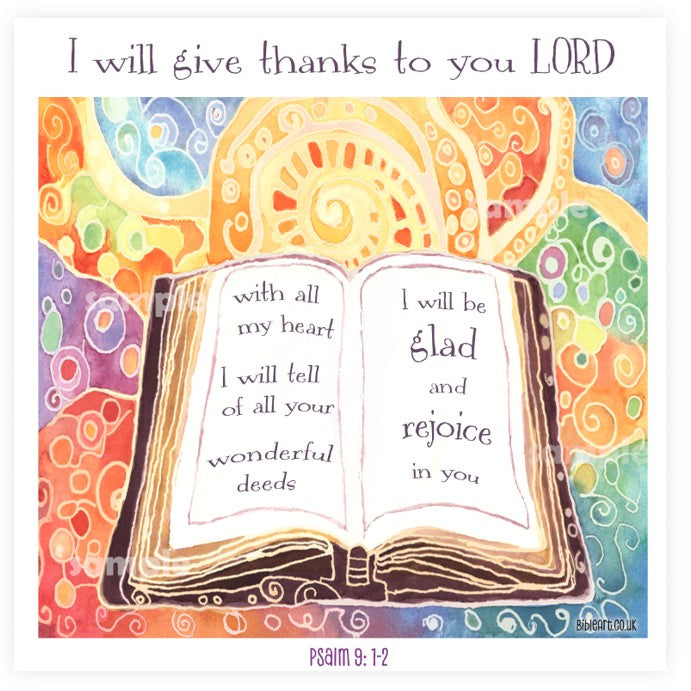 I will give thanks to you LORD
with all
my heart
I will tell
of all your
wonderful
deeds
I will be
glad
and
rejoice
in you
sample
sample
sample
sample
BibleArt.co.uk
Psalm 9: 1-2